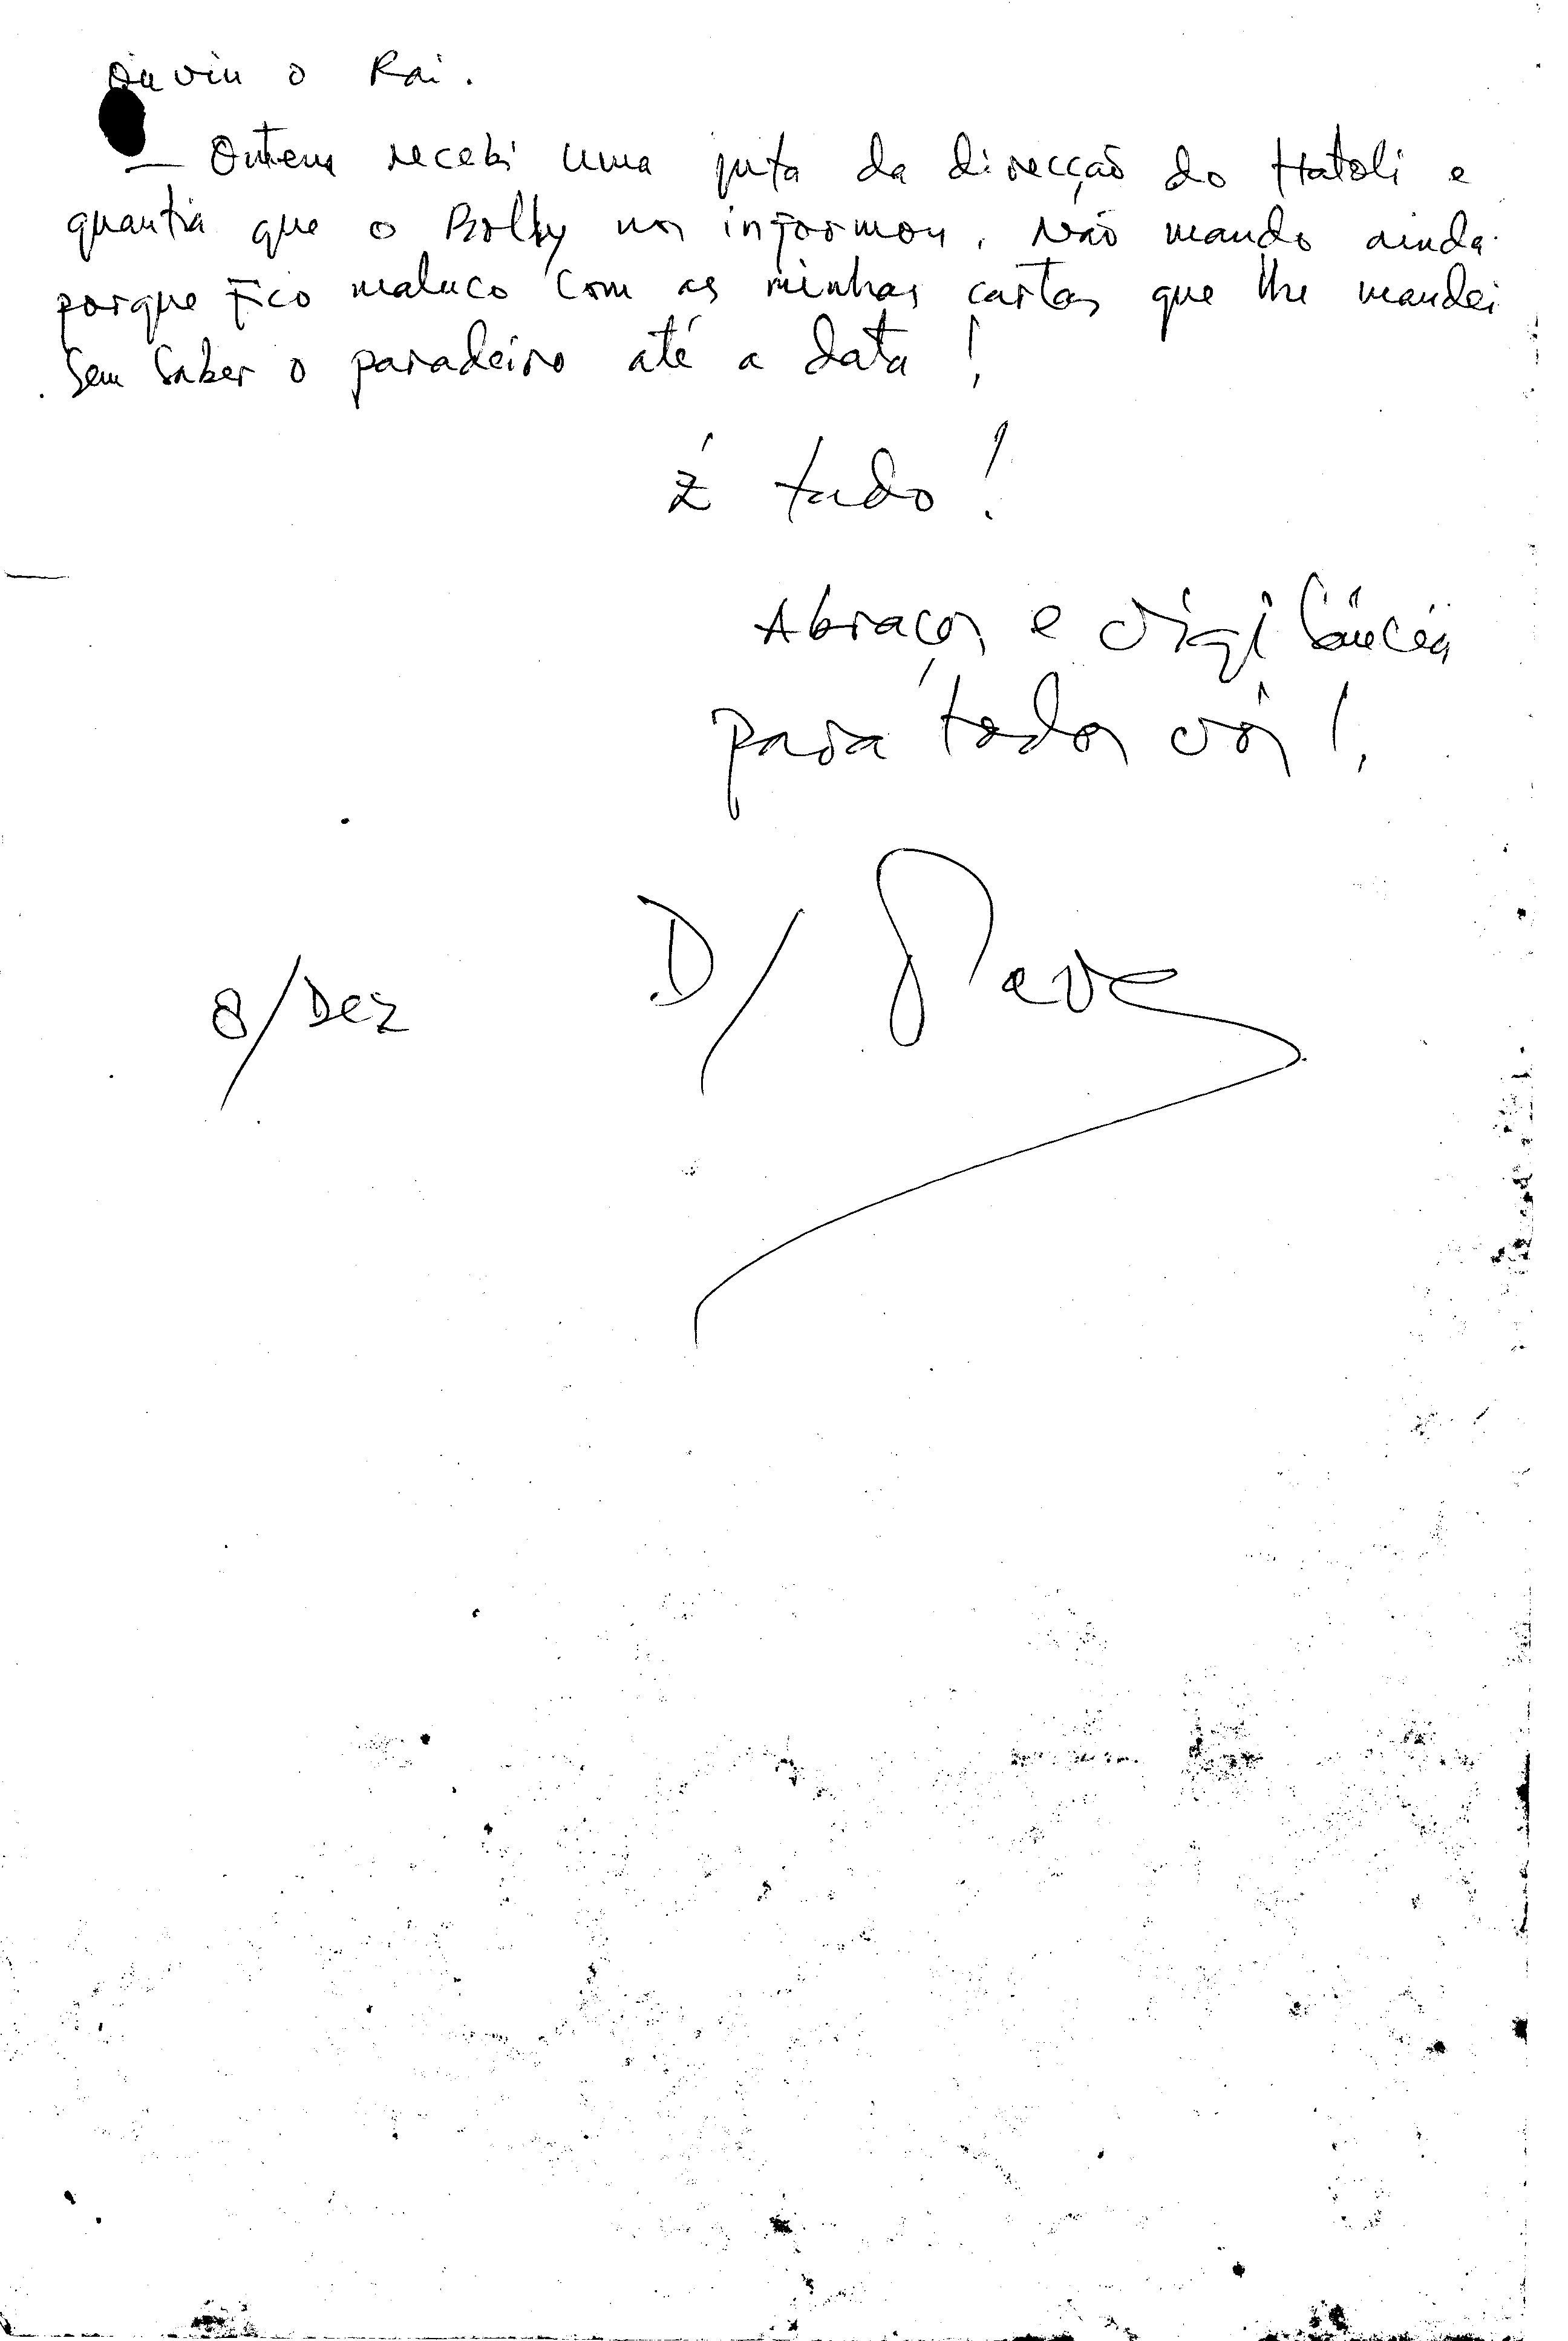 ouviu o Rai.
— Ontem recebi uma juta da direcção do Hatoli e
quantia que o Bolky nos informou. Não mando ainda
porque fico maluco com as minhas cartas que lhe mandei
sem saber o paradeiro até a data!
É tudo!
Abraços e vigilância
para todos vós!
8/Dez D/